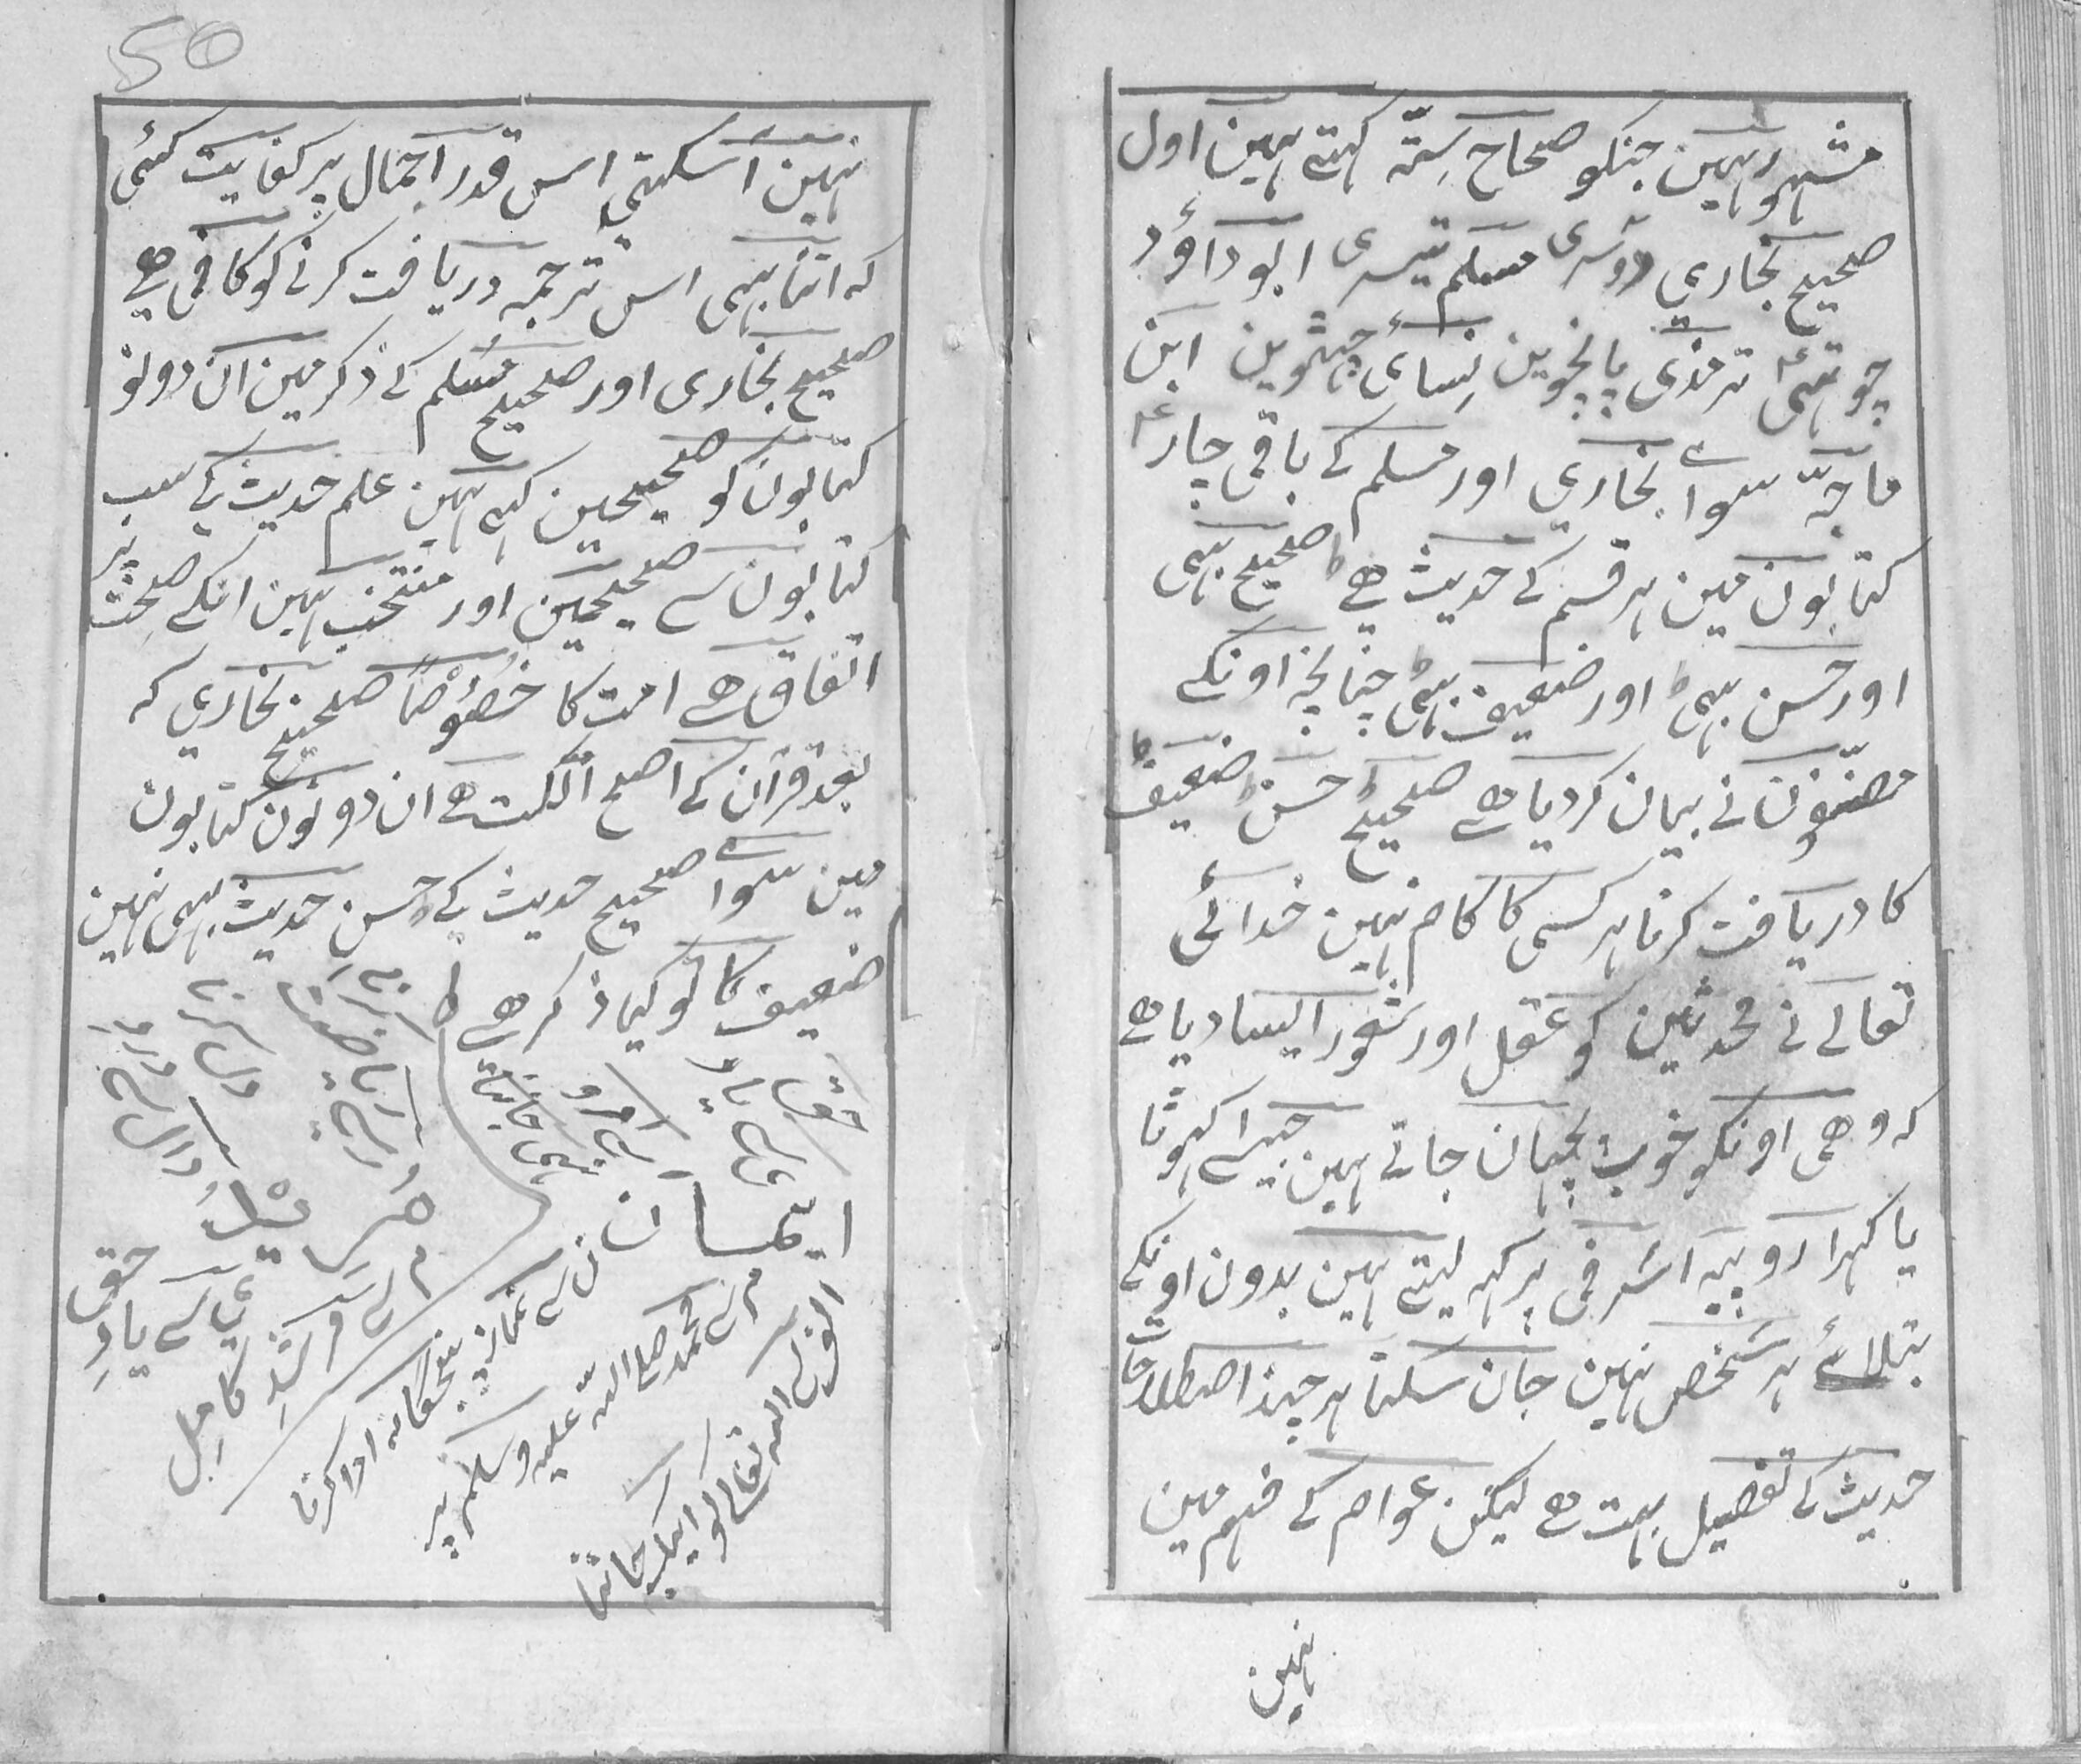 مشہور ہین جنکو صحاح سِتّہ کہتے ہین اول
صحیح بخاری دوسری مسلم تیسری ابو داؤد
چوتھی ترمذی پانچوین نِسائی چھٹوین ابن
ماجہّ سواے بخاری اور مسلم کے باقی چار
کتابون مین ہر قسم کے حدیث ھے صحیح بہی
اور حسن بہی اور ضعیف بہی چنانچہ اونکے
مصنّفون نے بیان کر دیا ھے صحیح حسن ضعیف
کا دریافت کرنا ہر کسی کا کام نہین خدائی
تعالے نے محدثین کو عقل اور شعور ایسا دیا ھے
کہ وھی اونکو خوب پہچان جاتے ہین جیسے کہوٹا
یا کہرا روپیہ اشرفی پرکہہ لیتے ہین بدون اونکے
بتلائے ہر شخص نہین جان سکتا ہر چند اصطلاحات
حدیث کے تفصیل بہت ھے لیکن عوام کے فہم مین
نہین
50
نہین آسکتی اس قدر اجمال پر کفایت کئی
کہ اتنا بہی اس ترجمہ دریافت کرنے کو کافی ھے
صحیح بخاری اور صحیح مُسلم کے ذکر مین ان دونو
کتابون کو صحیحین کہے ہین علم حدیث کے سب
کتابون سے صحیحین اور منتخب ہین انکے صحت پر
اتفاق ھے امت کا خصُوصًا صحیح بخاری کہ
بعد قرآن کے اصح الکتب ھے ان دونون کتابون
مین سواے صحیح حدیث کے حسن حدیث بہی نہین
ضعیف کا تو کیا ذکر ھے
ایمان
الف سے اللہ تعالے کو ایک جاننا
م سے محمد صلی اللہ علیہ وسلم پر
ن سے نماز پنجگانہ ادا کرنا
م سے مرشدِ کامِل
ی سے یادِ حق